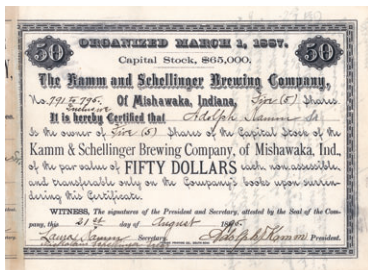 50 ORGANIZED MARCH 1, 1887. 50
Capital Stock, $65,000.
The Kamm and Schellinger Brewing Company,
No. 791 to 795. Of Mishawaka, Indiana, Five (5) Shares
Inclusive
It is hereby Certified that Adolph Kamm Sr
Is the owner of Five (5) Shares of the Capital Stock of the
Kamm & Schellinger Brewing Company, of Mishawaka, Ind.,
of the par value of FIFTY DOLLARS each, non assessible,
and transferable only on the Company's books upon surren-
dering this Certificate.
WITNESS, The signatures of the President and Secretary, attested by the Seal of the Com-
pany, this 21st day of August
Secretary. Adolph Kamm President.